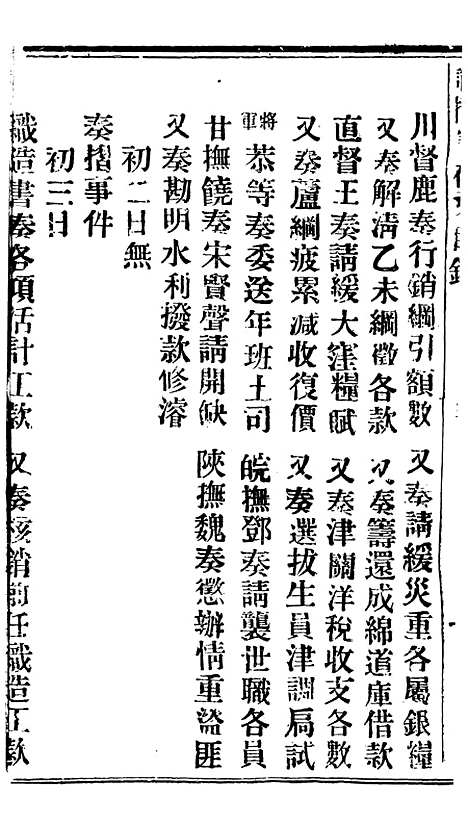 川督鹿奏行銷綱引額數　又奏請緩災重各屬銀糧
又奏解淸乙未綱徵各款　又奏籌還成綿道庫借款
直督王奏請緩大窪糧賦　又奏津關洋稅收支各數
又奏蘆綱疲累減收復價　又奏選拔生員津調局試
將軍恭等奏委送年班土司　皖撫鄧奏請襲世職各員
甘撫饒奏宋賢聲請開缺　陝撫魏奏懲辦情重盜匪
又奏勘明水利撥款修濬
初二日無
奏摺事件
初三日
織造書奏各項活計工款　又奏核銷前任織造工款